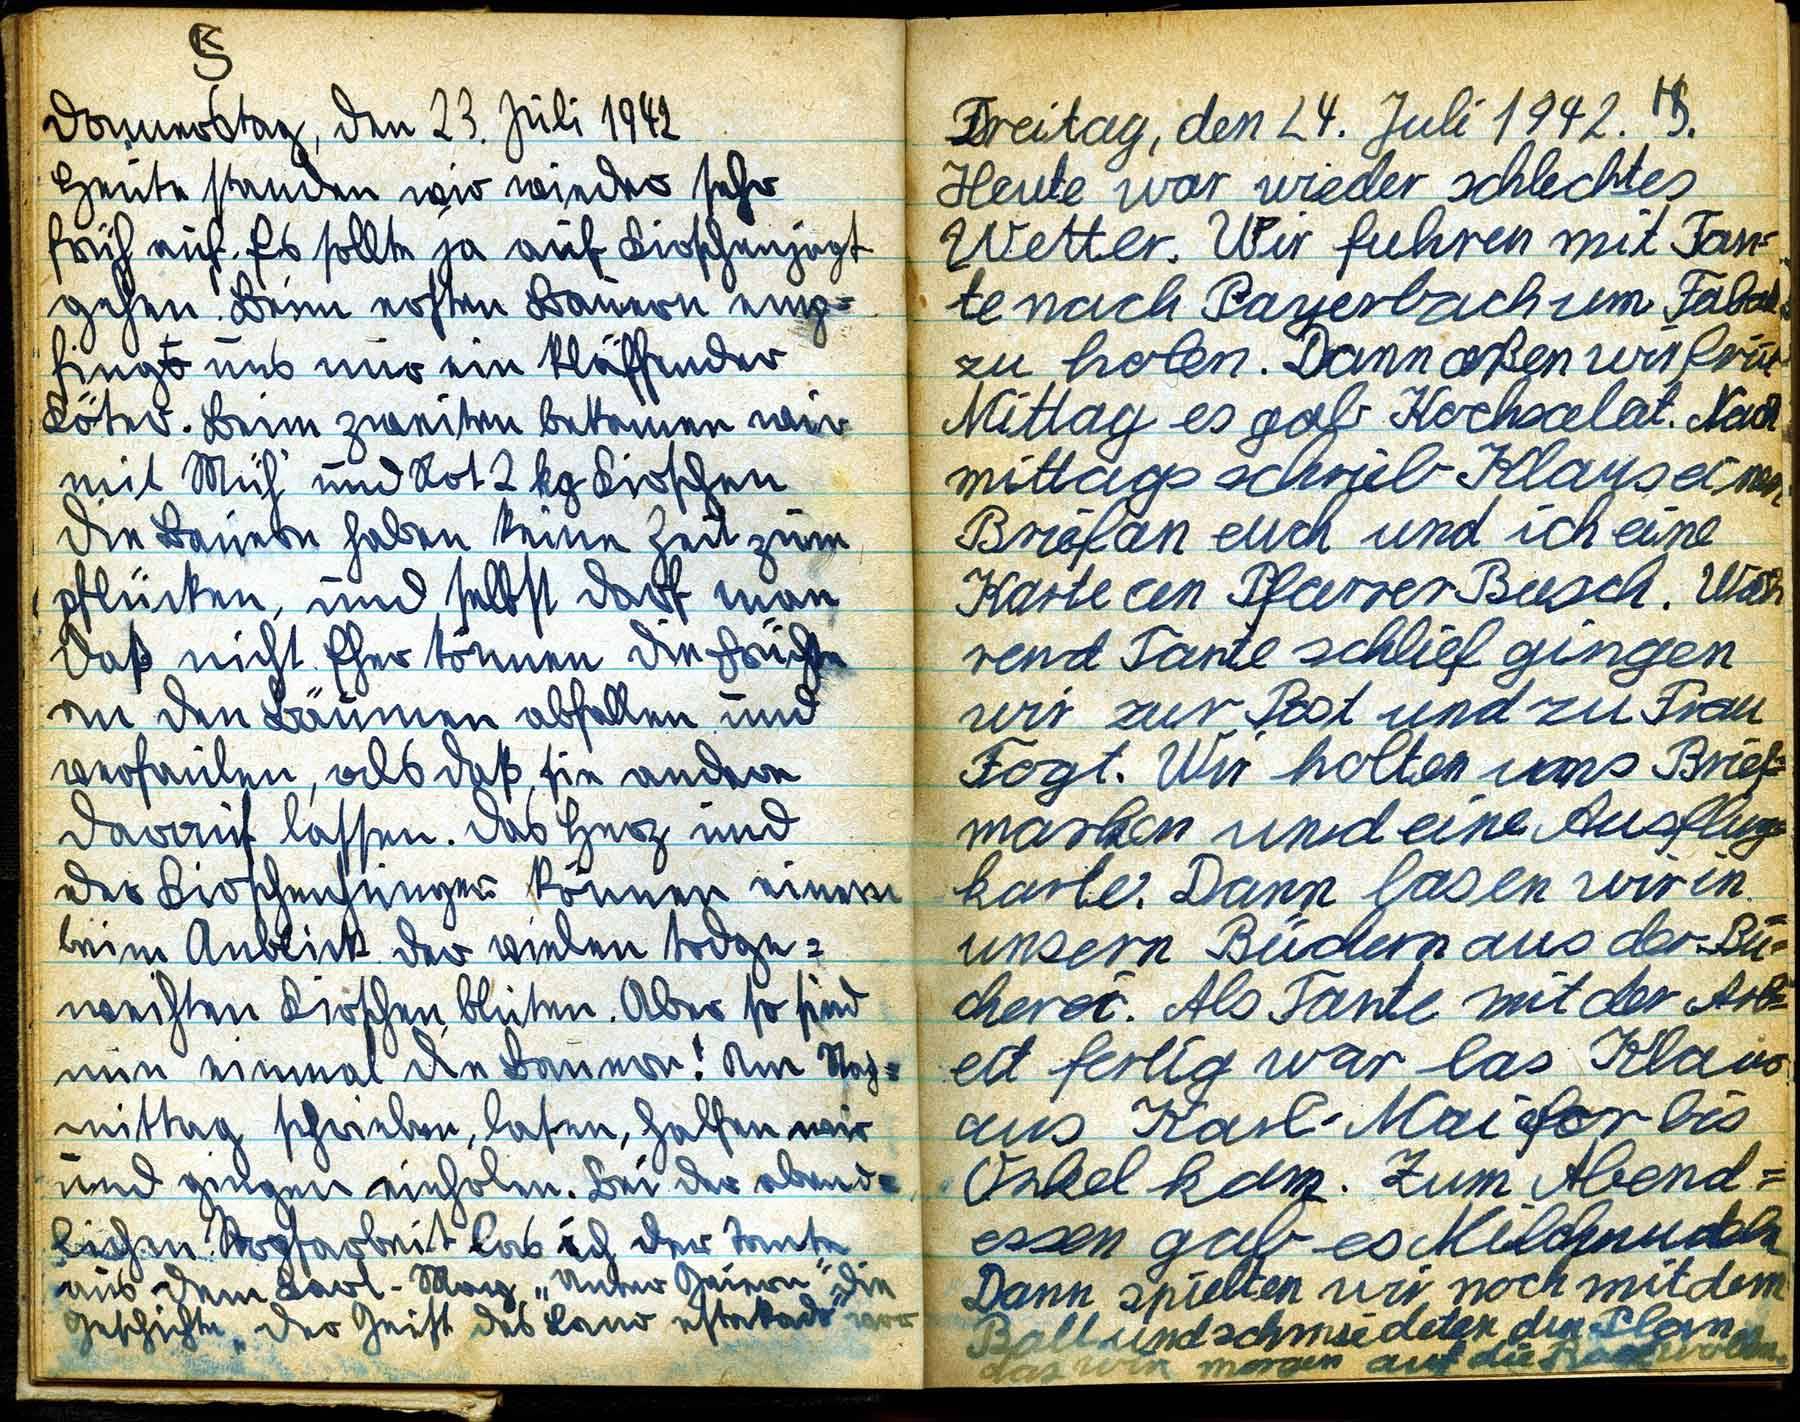 KS
Donnerstag, den 23. Juli 1942
Heute standen wir wieder sehr
früh auf. Es sollte ja auf Kirschenjagt
gehen! Beim ersten Bauern emp=
fing uns nur ein kläffender
Köter. Beim zweiten bekamen wir
mit Müh' und Not 2 kg Kirschen
Die Bauern haben keine Zeit zum
pflücken, und selbst darf man
daß nicht. Eher können die Früchte
an den Bäumen abfallen und
verfaulen, als daß sie andere
darauf lassen. Das Herz und
der Kirschenhunger können einem
beim Anblick der vielen todge=
weihten Kirschen bluten. Aber so sind
nun einmal die Bauern! Am Nach=
mittag schrieben, lasen, halfen wir
und gingen einholen. Bei der abend=
lichen Kopfarbeit las ich der Tante
aus dem Karl-May „Unter Geiern" die
Geschichte „Der Geist des Llano estakado" vor
Freitag, den 24. Juli 1942. HS.
Heute war wieder schlechtes
Wetter. Wir fuhren mit Tan=
te nach Payerbach um Tabak
zu holen. Dann aßen wir
Mittag es gab Kochsalat. Nach
mittags schrieb Klaus einen
Brief an euch und ich eine
Karte an Pfarrer Busch. Wäh
rend Tante schlief gingen
wir zur Post und zu Frau
Fogt. Wir holten uns Brief=
marken und eine Ausflugs
karte. Dann lasen wir in
unsern Büchern aus der Bü=
cherei. Als Tante mit der Arb=
eit fertig war las Klaus
aus Karl-Mai for bis
Onkel kam. Zum Abend=
essen gab es Milchnudeln
Dann spielten wir noch mit dem
Ball und schmiedeten den Plan
das wir morgen auf die Rax wollen.